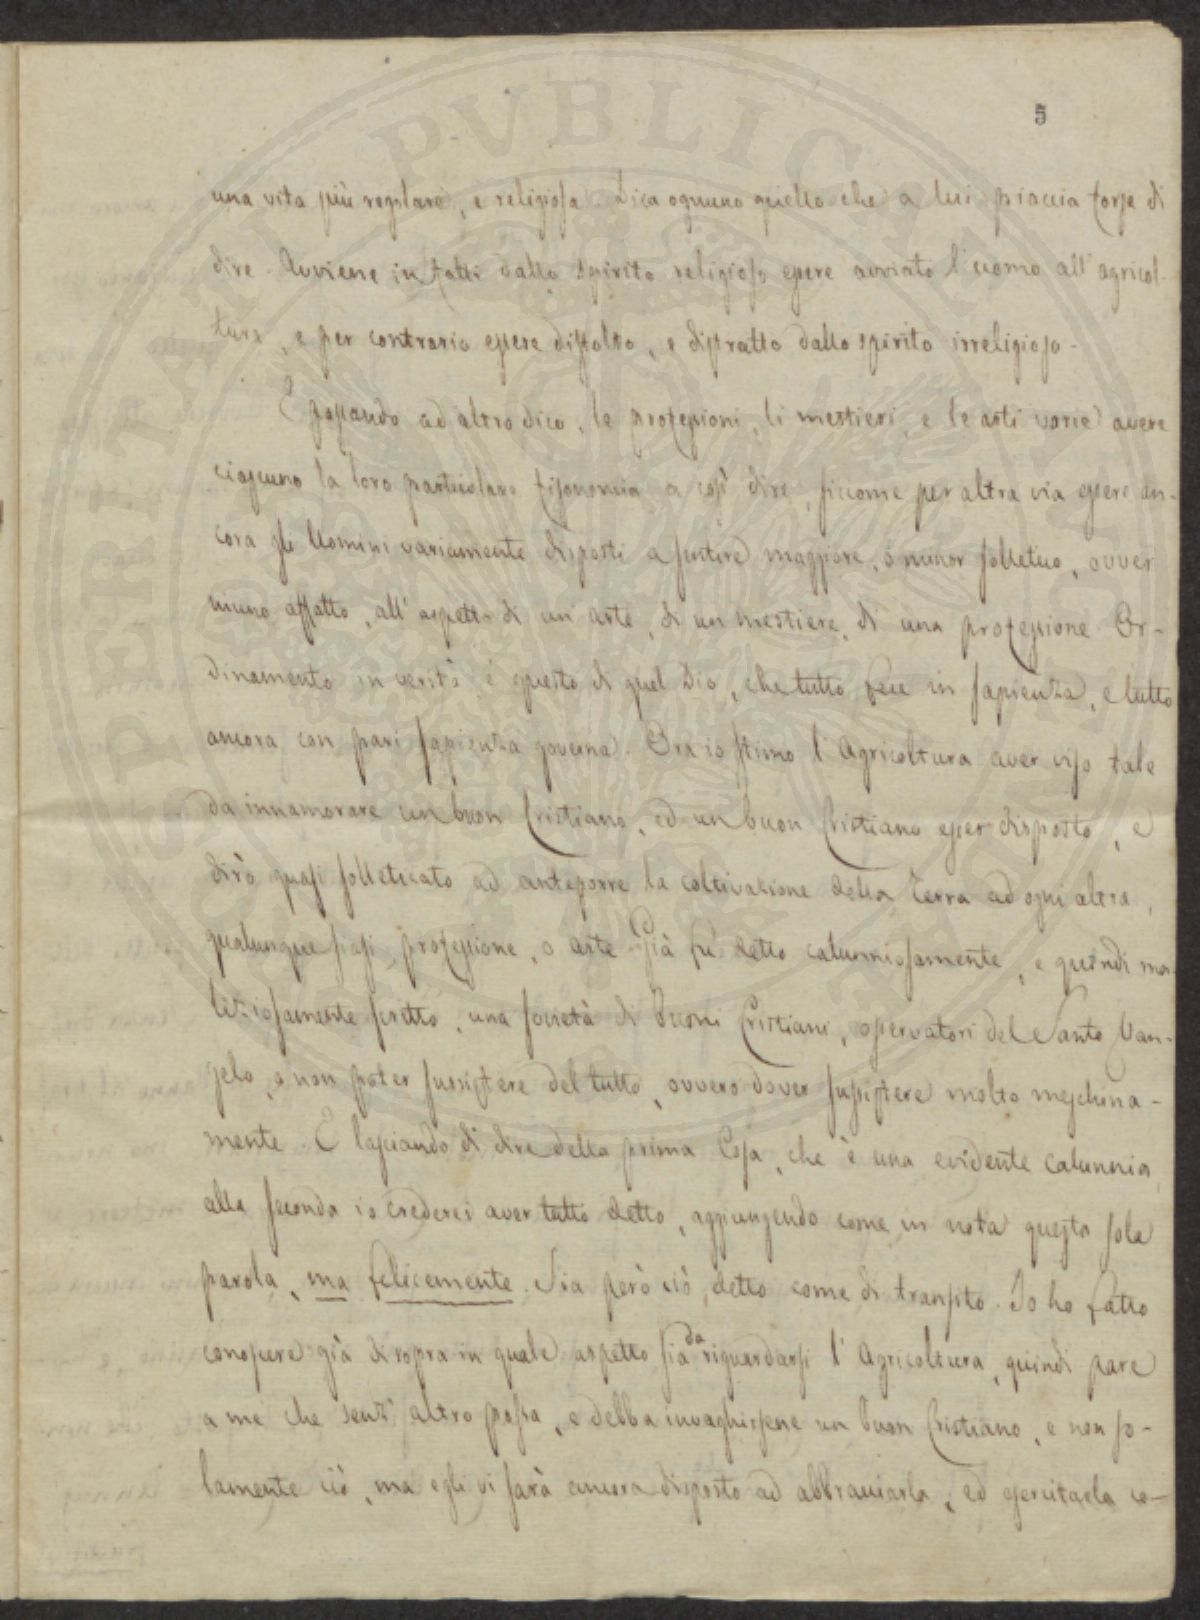 5
una vita più regolare, e religiosa. Dica ognuno quello che a lui piaccia forse di
dire. Avviene in fatti dallo spirito religioso essere avviato l'uomo all'agricol-
tura, e per contrario essere distolto, e distratto dallo spirito irreligioso.
E passando ad altro dico, le professioni, li mestieri, e le arti varie avere
ciascuno la loro particolare fisonomia a così dire, siccome per altra via essere an-
cora gli Uomini variamente disposti a sentire maggiore, o minor solletico, ovver
niuno affatto, all'aspetto di un'arte, di un mestiere, di una professione. Or-
dinamento in verità è questo di quel Dio, che tutto fece in sapienza, e tutto
ancora con pari sapienza governa. Ora io stimo l'Agricoltura aver viso tale
da innamorare un buon Cristiano, ed un buon Cristiano esser disposto, e
dirò quasi solleticato ad anteporre la coltivazione della Terra ad ogni altra,
qualunque siasi, professione, o arte. Già fu detto calunniosamente, e quindi ma-
liziosamente scritto, una società di buoni Cristiani, osservatori del Santo Van-
gelo, o non poter sussistere del tutto, ovvero dover sussistere molto meschina-
mente. E lasciando di dire della prima Cosa, che è una evidente calunnia,
alla seconda io crederei aver tutto detto, aggiungendo come in nota questa sola
parola, ma felicemente. Sia però ciò detto come di transito. Io ho fatto
conoscere già di sopra in quale aspetto sia da riguardarsi l'Agricoltura, quindi pare
a me che senz'altro possa, e debba invaghirsene un buon Cristiano, e non so-
lamente ciò, ma egli vi sarà ancora disposto ad abbracciarla, ed esercitarla co-